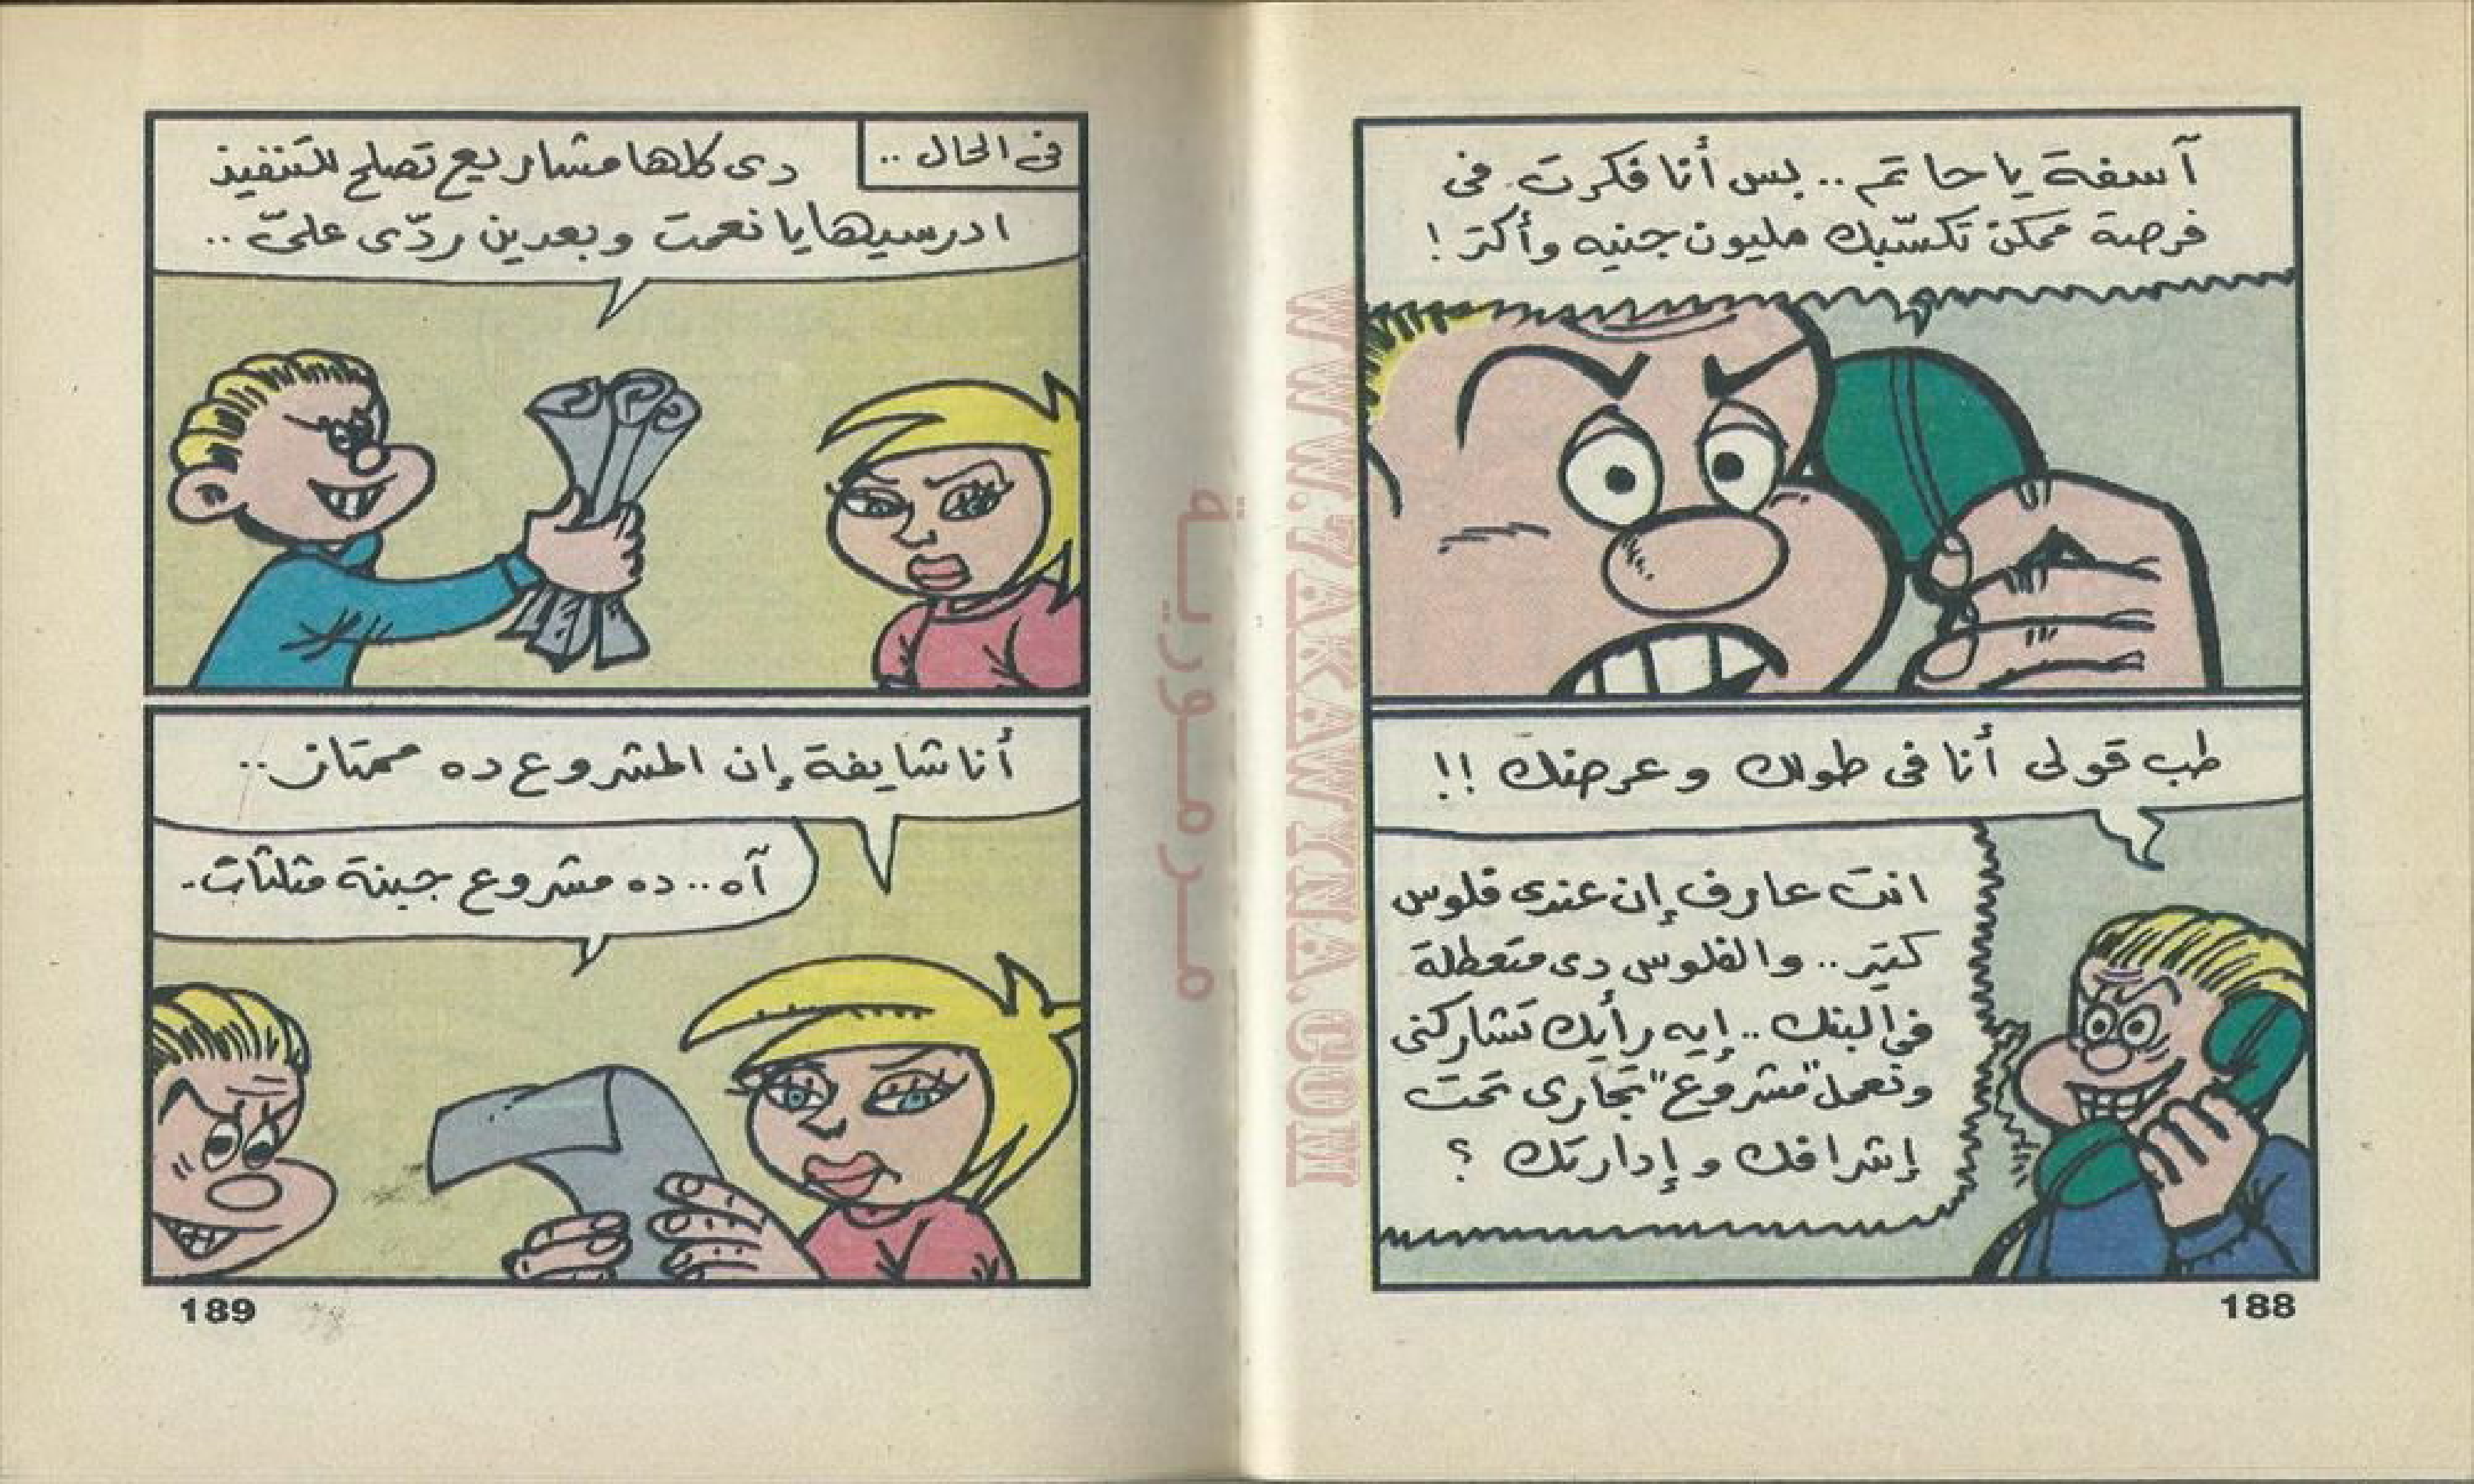 آسفة يا حاتم .. بس أنا فكرت فى
فرصة ممكن تكسّبك مليون جنيه وأكتر !
طب قولى أنا فى طولك وعرضك !!
انت عارف إن عندى فلوس
كتير .. والفلوس دى متعطلة
فى البنك .. إيه رأيك تشاركنى
ونعمل "مشروع" تجارى تحت
إشرافك وإدارتك ؟
188
فى الحال ..
دى كلها مشاريع تصلح للتنفيذ
ادرسيها يا نعمت وبعدين ردّى علىّ ..
أنا شايفة إن المشروع ده ممتاز ..
آه .. ده مشروع جبنة مثلثات .
189
WWW.7AKAWYNA.COM
مرمورية